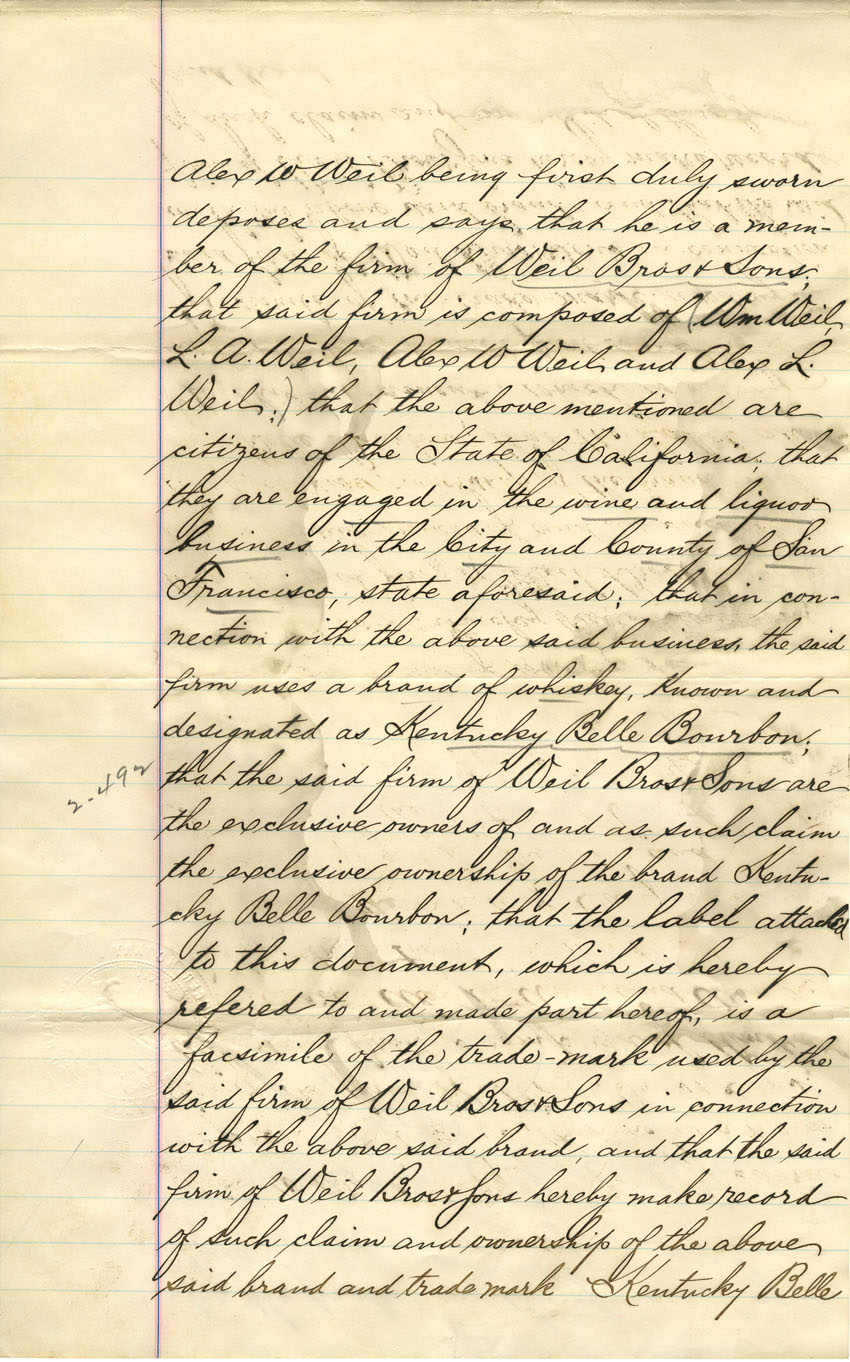 Alex W Weil being first duly sworn
deposes and says that he is a mem-
ber of the firm of Weil Bros & Sons;
that said firm is composed of (Wm Weil,
L. A. Weil, Alex W Weil and Alex L.
Weil;) that the above mentioned are
citizens of the State of California; that
they are engaged in the wine and liquor
business in the City and County of San
Francisco, state aforesaid; that in con-
nection with the above said business, the said
firm uses a brand of whiskey, Known and
designated as Kentucky Belle Bourbon;
2-492
that the said firm of Weil Bros & Sons are
the exclusive owners of and as such claim
the exclusive ownership of the brand Kentu-
cky Belle Bourbon; that the label attached
to this document, which is hereby
refered to and made part hereof, is a
facsimile of the trade-mark used by the
said firm of Weil Bros & Sons in connection
with the above said brand, and that the said
firm of Weil Bros & Sons hereby make record
of such claim and ownership of the above
said brand and trade mark Kentucky Belle